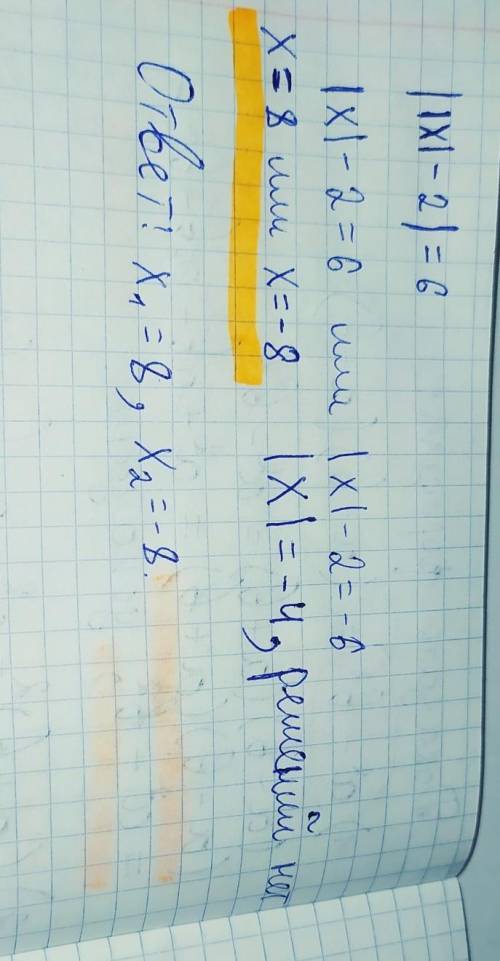 ||x| - 2| = 6
|x| - 2 = 6 или |x| - 2 = -6
x = 8 или x = -8 |x| = -4, решений нет
Ответ: x₁ = 8, x₂ = -8.